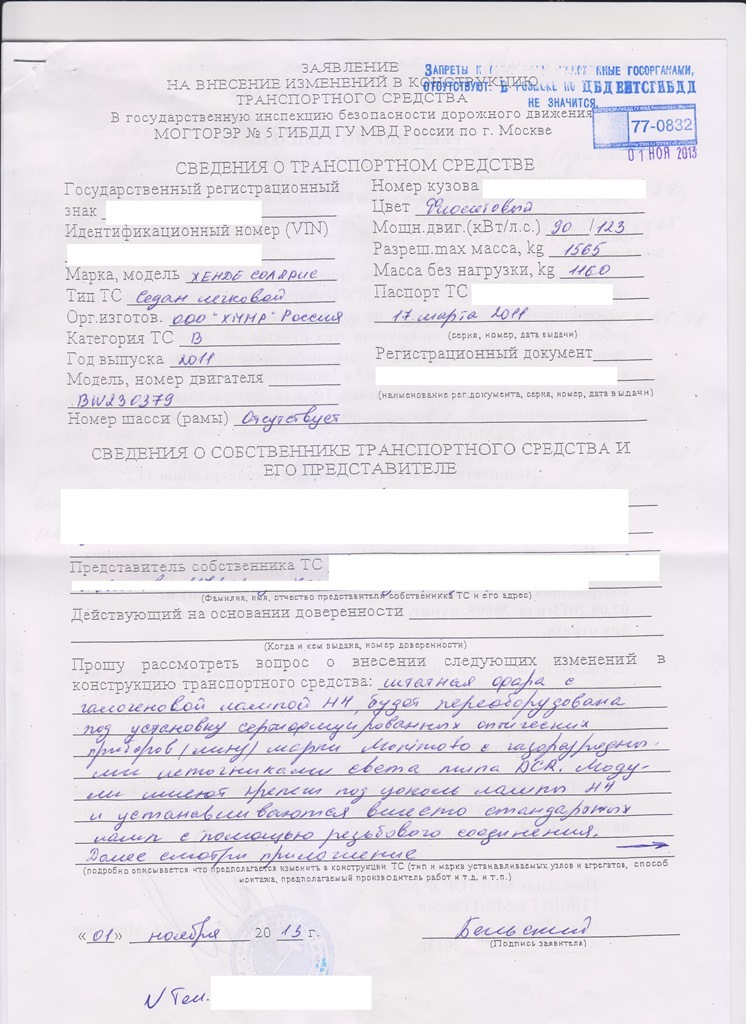 ЗАЯВЛЕНИЕ
НА ВНЕСЕНИЕ ИЗМЕНЕНИЙ В КОНСТРУКЦИЮ
ТРАНСПОРТНОГО СРЕДСТВА
В государственную инспекцию безопасности дорожного движения
МОГТОРЭР № 5 ГИБДД ГУ МВД России по г. Москве
ЗАПРЕТЫ К НЫЕ ГОСОРГАНАМИ,
ОТСУТСТВУЮТ: В РОЗЫСКЕ ПО ЦБДЕИТСГИБДД
НЕ ЗНАЧИТСЯ.
77-0832
01 НОЯ 2013
СВЕДЕНИЯ О ТРАНСПОРТНОМ СРЕДСТВЕ
Государственный регистрационный
знак
Идентификационный номер (VIN)
Марка, модель ХЕНДЕ СОЛЯРИС
Тип ТС Седан легковой
Орг.изготов. ООО "ХММР" Россия
Категория ТС В
Год выпуска 2011
Модель, номер двигателя
BW230379
Номер шасси (рамы) Отсутствует
Номер кузова
Цвет Фиолетовый
Мощн.двиг.(кВт/л.с.) 90 /123
Разреш.max масса, kg 1565
Масса без нагрузки, kg 1160
Паспорт ТС
17 марта 2011
(серия, номер, дата выдачи)
Регистрационный документ
(наименование рег.документа, серия, номер, дата выдачи)
СВЕДЕНИЯ О СОБСТВЕННИКЕ ТРАНСПОРТНОГО СРЕДСТВА И
ЕГО ПРЕДСТАВИТЕЛЕ
Представитель собственника ТС
(Фамилия, имя, отчество представителя собственника ТС и его адрес)
Действующий на основании доверенности
(Когда и кем выдана, номер доверенности)
Прошу рассмотреть вопрос о внесении следующих изменений в
конструкцию транспортного средства: штатная фара с
галогеновой лампой H4, будет переоборудована
под установку сертифицированных оптических
приборов (линз) марки Morimoto с газоразрядны-
ми источниками света типа DCR. Моду-
ли имеют крепеж под цоколь лампы H4
и устанавливаются вместо стандартных
ламп с помощью резьбового соединения.
Далее смотри приложение
(подробно описывается что предполагается изменить в конструкции ТС (тип и марка устанавливаемых узлов и агрегатов, способ
монтажа, предполагаемый производитель работ и т.д. и т.п.)
«01» ноября 20 13 г.
Бельский
(Подпись заявителя)
N Тел.